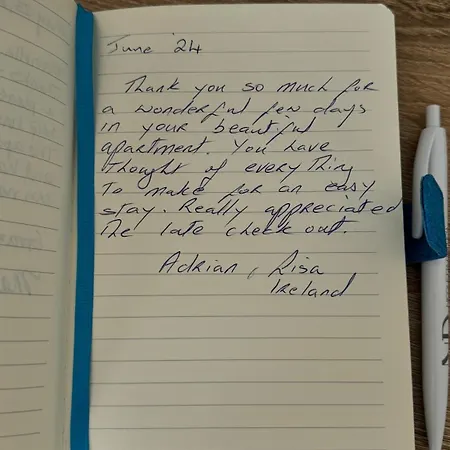 June '24
Thank you so much for
a wonderful few days
in your beautiful
apartment. You have
thought of every thing
to make for an easy
stay. Really appreciated
the late check out.
Adrian, Lisa
Ireland